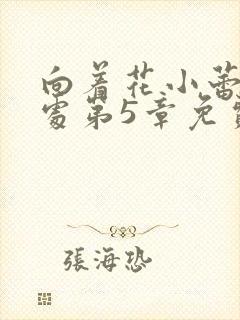 向着花小蕾
处第5章免费
張海恐